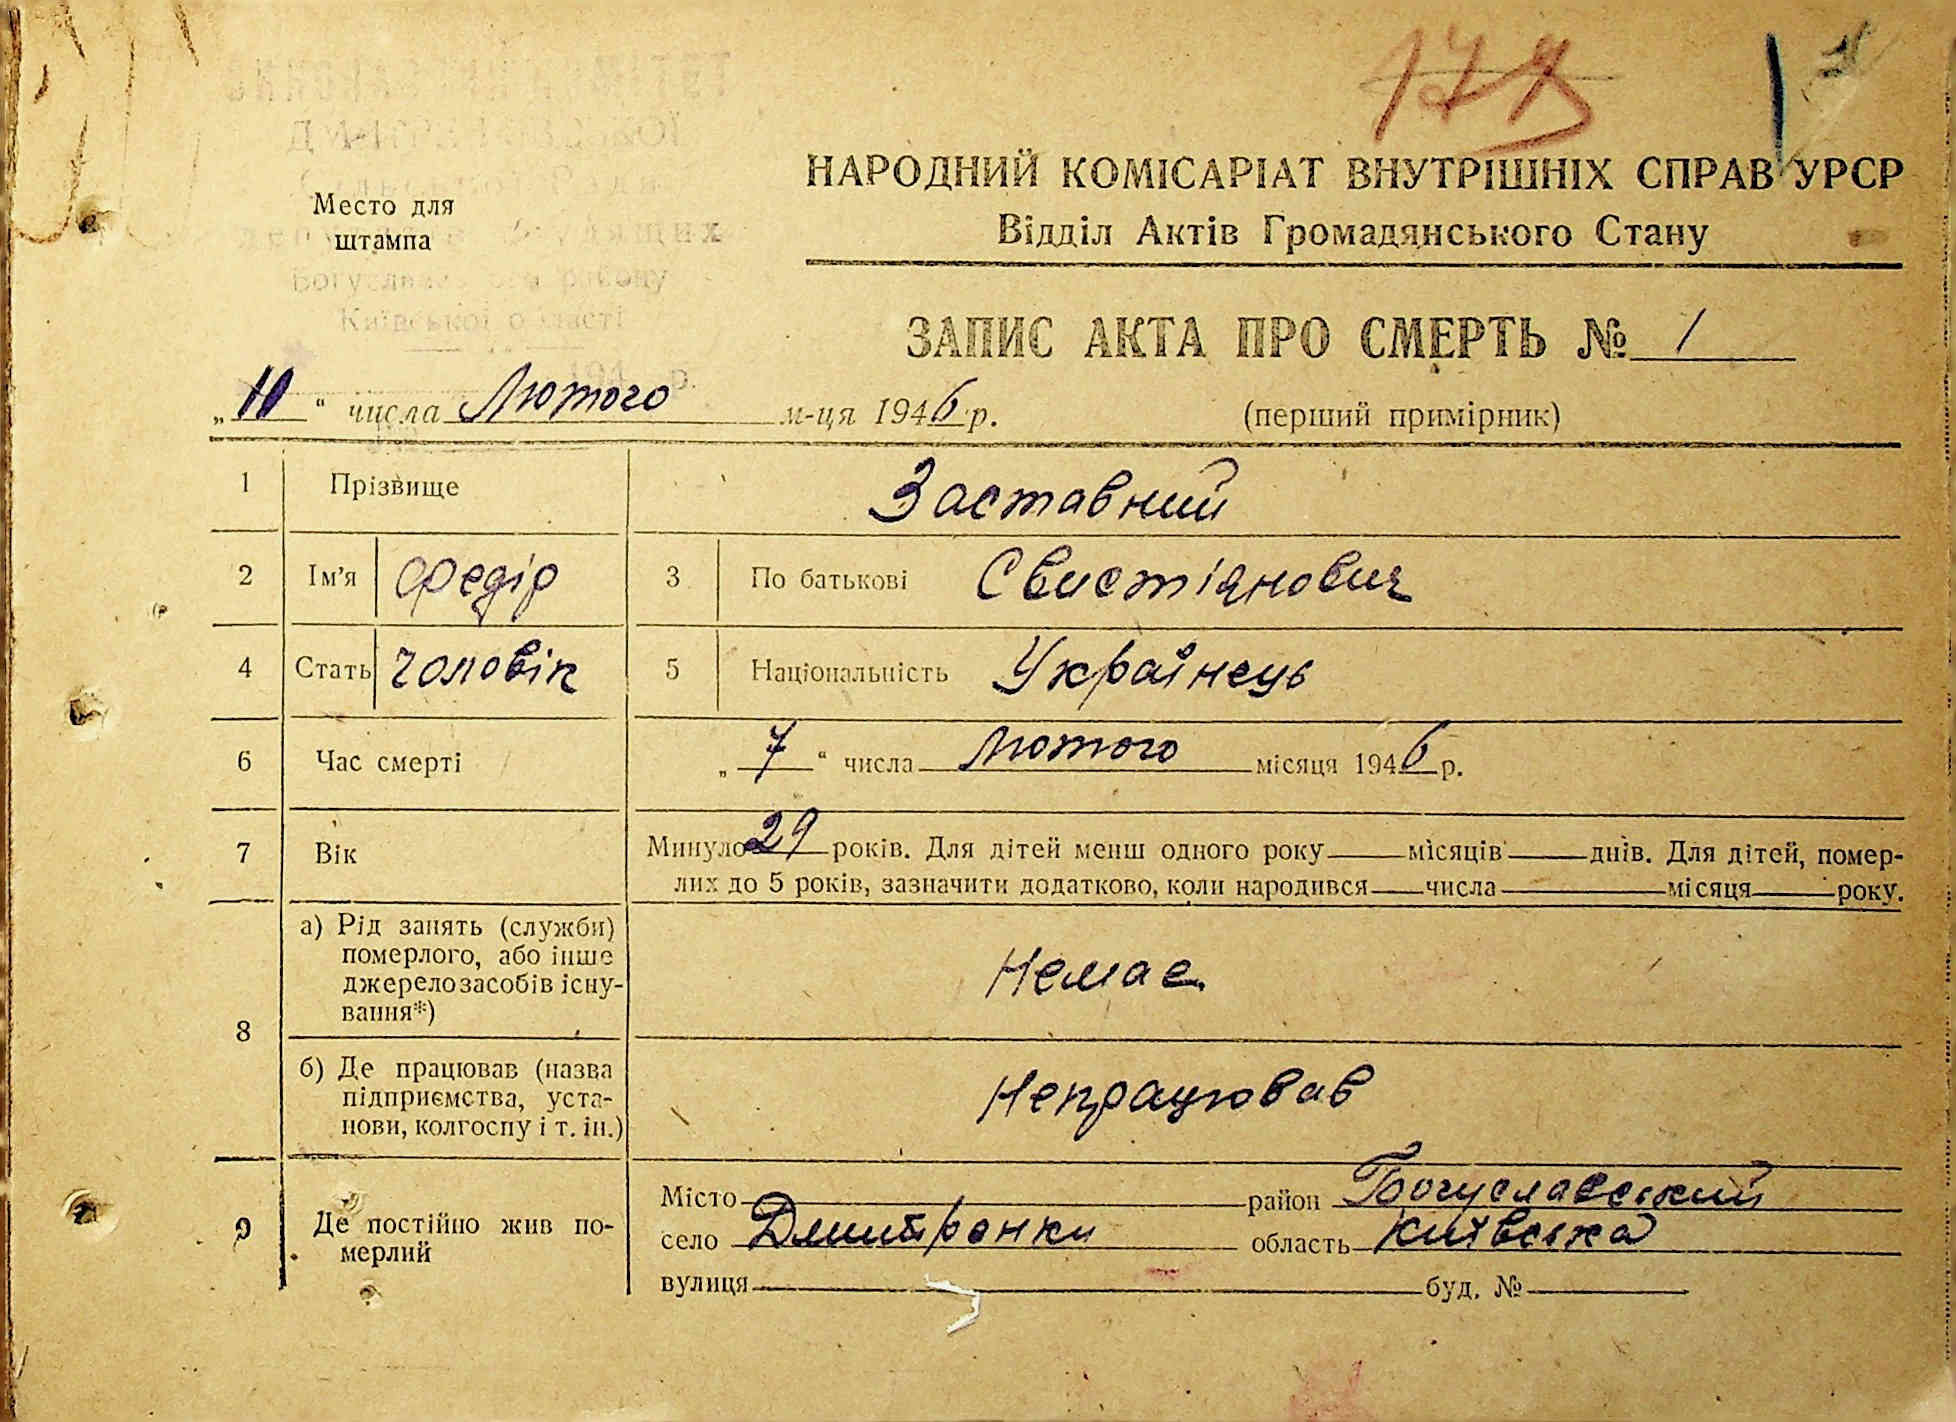 179
НАРОДНИЙ КОМІСАРІАТ ВНУТРІШНІХ СПРАВ УРСР
Відділ Актів Громадянського Стану
Место для
штампа
Богуславського району
Київської області
ЗАПИС АКТА ПРО СМЕРТЬ № 1
„10“ числа Лютого м-ця 1946 р.
(перший примірник)
1 Прізвище Заставний
2 Ім’я Федір 3 По батькові Свистіянович
4 Стать чоловік 5 Національність Українець
6 Час смерті „7“ числа Лютого місяця 1946 р.
7 Вік Минуло 29 років. Для дітей менш одного року місяців днів. Для дітей, помер-
лих до 5 років, зазначити додатково, коли народився числа місяця року.
8 а) Рід занять (служби)
померлого, або інше
джерело засобів існу-
вання*)
Немає
б) Де працював (назва
підприємства, уста-
нови, колгоспу і т. ін.)
Непрацював
9 Де постійно жив по-
мерлий
Місто район Богуславський
село Дмитренки область Київська
вулиця буд. №